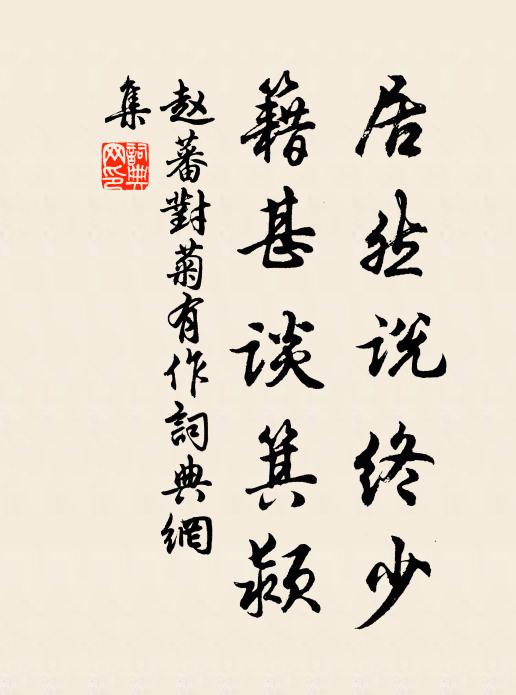 居然说终少
籍甚谈箕颍
赵蕃對菊有作詞典網
集
詞典
网印